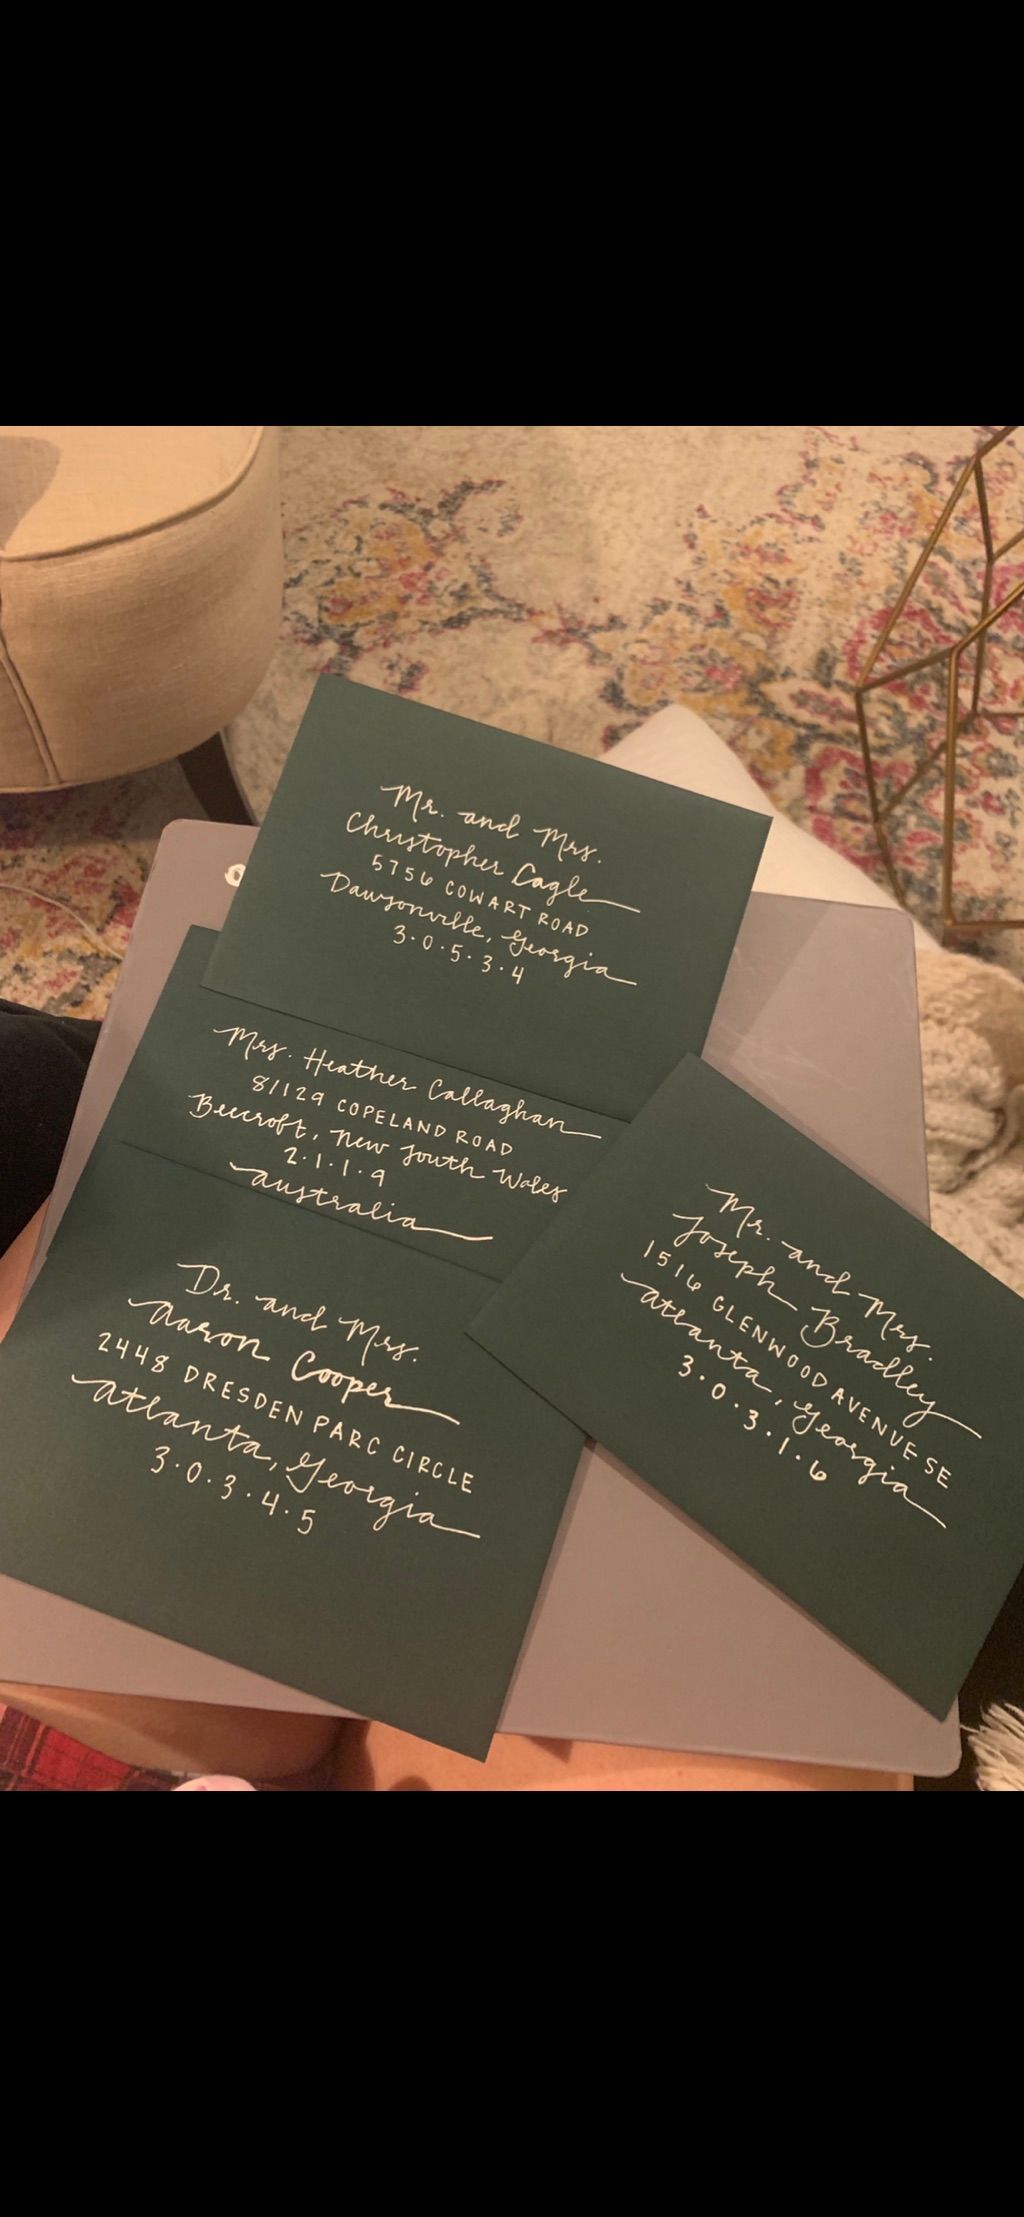 Mr. and Mrs.
Christopher Cagle
5756 COWART ROAD
Dawsonville, Georgia
3·0·5·3·4
Mrs. Heather Callaghan
8/129 COPELAND ROAD
Beecroft, New South Wales
2·1·1·9
Australia
Dr. and Mrs.
Aaron Cooper
2448 DRESDEN PARC CIRCLE
Atlanta, Georgia
3·0·3·4·5
Mr. and Mrs.
Joseph Bradley
1516 GLENWOOD AVENUE SE
Atlanta, Georgia
3·0·3·1·6